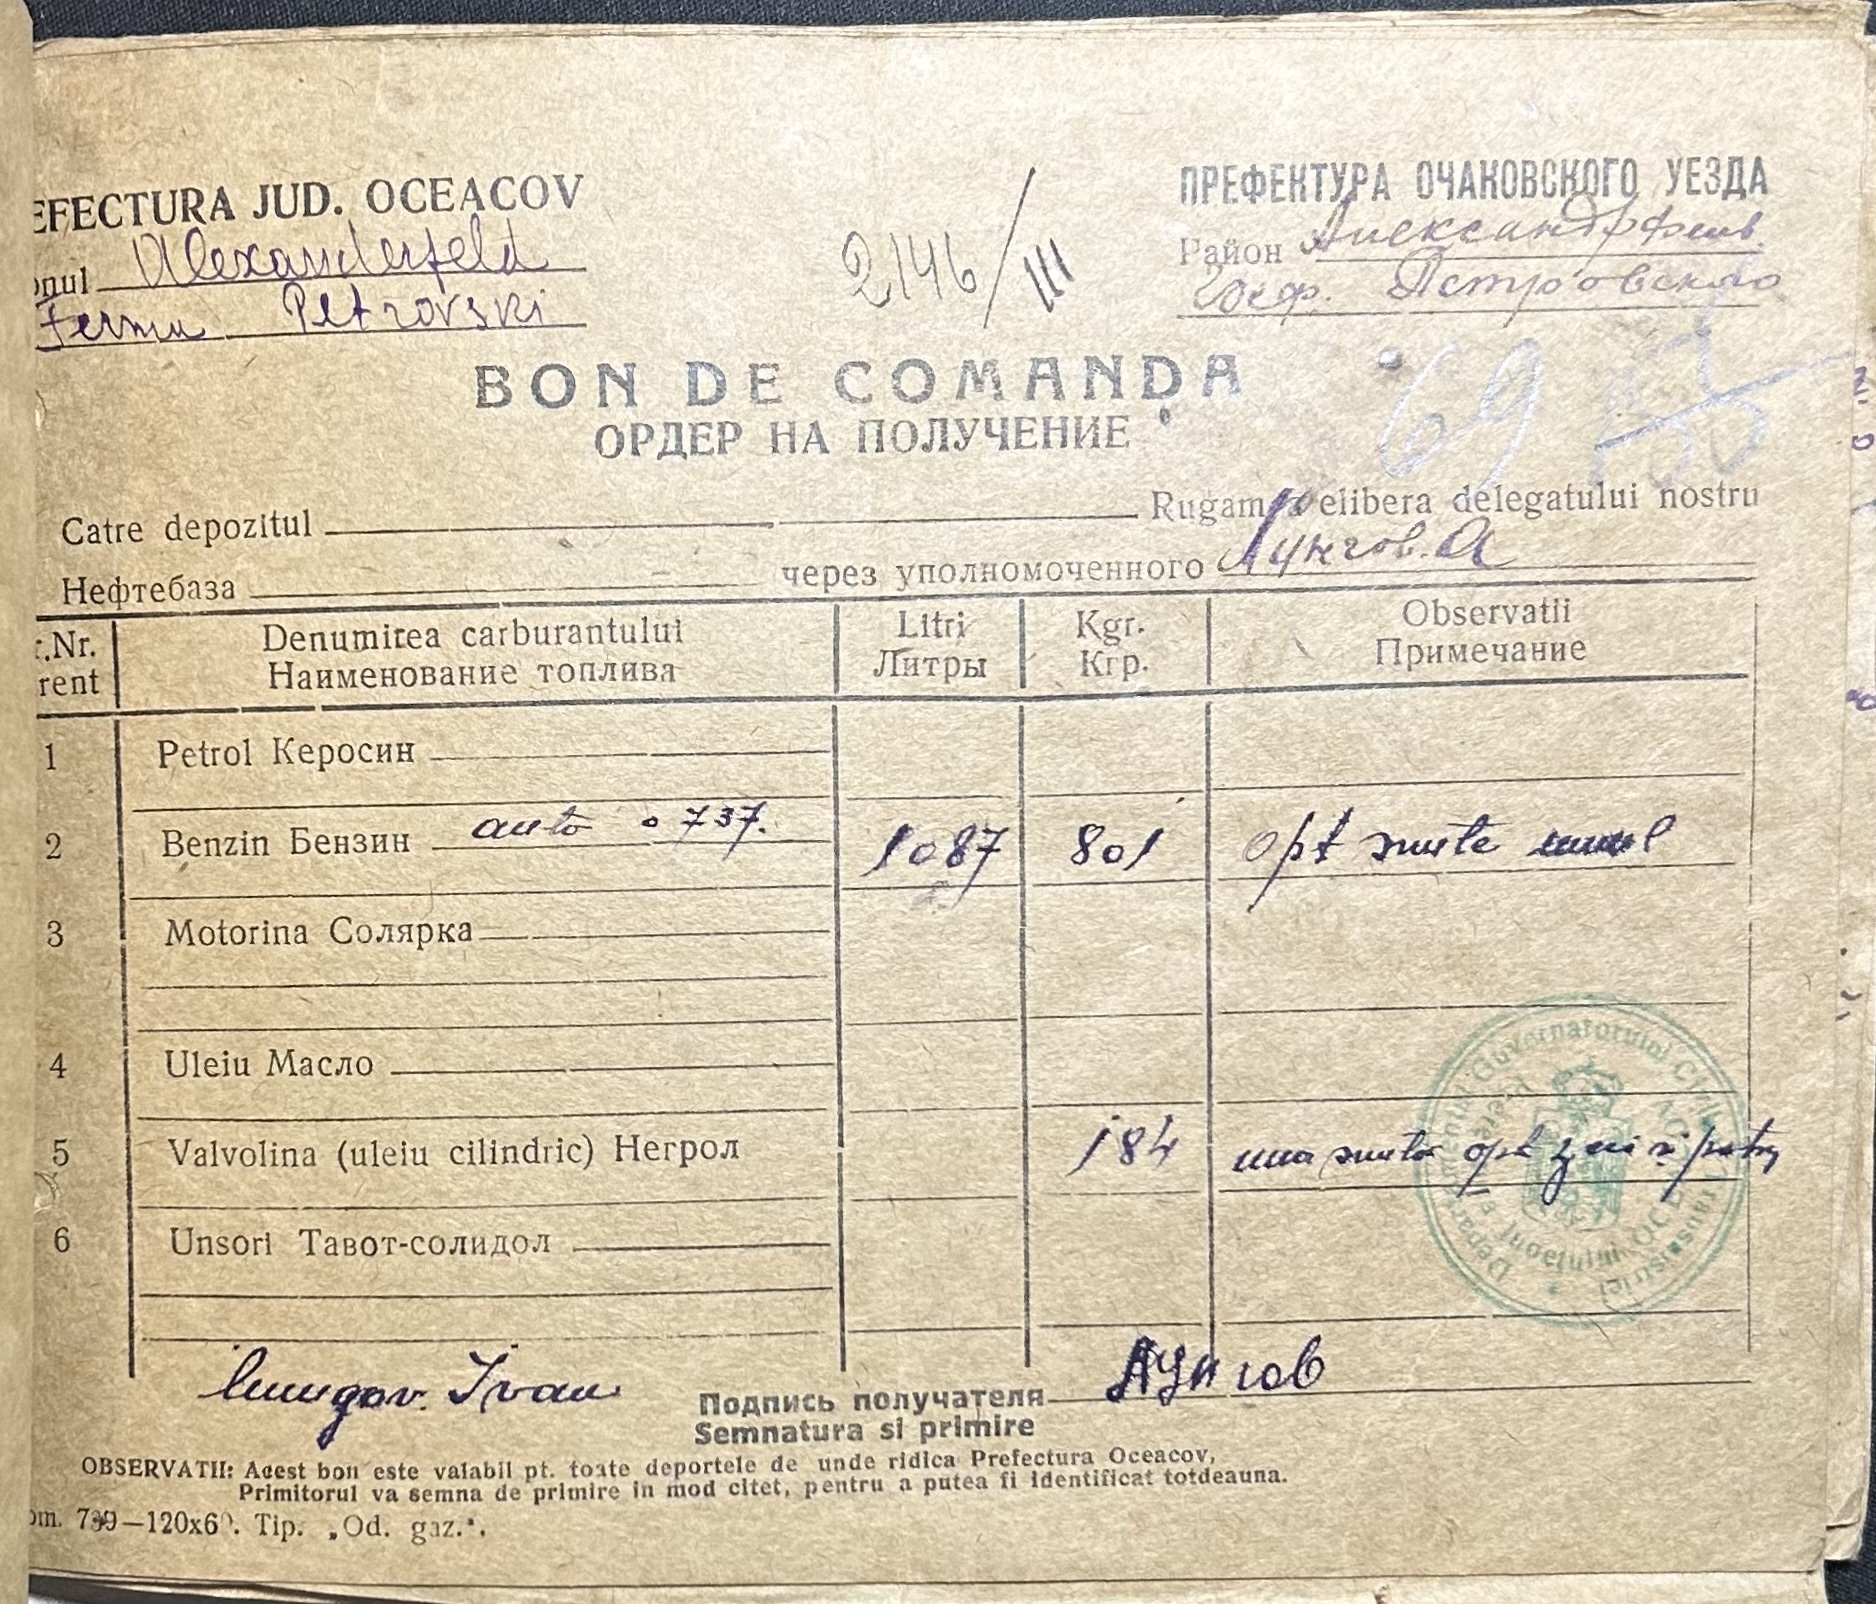 EFECTURA JUD. OCEACOV
onul Alexanderfeld
Ferma Petrovski
2146/III
ПРЕФЕКТУРА ОЧАКОВСКОГО УЕЗДА
Район Александрфельд.
Петровского
69
BON DE COMANDA
ОРДЕР НА ПОЛУЧЕНИЕ
Catre depozitul Rugam a elibera delegatului nostru
Нефтебаза через уполномоченного Лунгов. А
.Nr. Denumirea carburantului Litri Kgr. Observatii
rent Наименование топлива Литры Кгр. Примечание
1 Petrol Керосин
2 Benzin Бензин auto 0 737. 1087 801 opt sute unul
3 Motorina Солярка
4 Uleiu Масло
5 Valvolina (uleiu cilindric) Негрол 184 una suta opt zeci si patru
6 Unsori Тавот-солидол
Departamentul Guvernatorului Civil Transnistriei
Prefectura Judetului OCEACOV
Lungov. Ivan Подпись получателя Лунгов
Semnatura si primire
OBSERVATII: Acest bon este valabil pt. toate deportele de unde ridica Prefectura Oceacov,
Primitorul va semna de primire in mod citet, pentru a putea fi identificat totdeauna.
om. 739—120x60. Tip. „Od. gaz.".